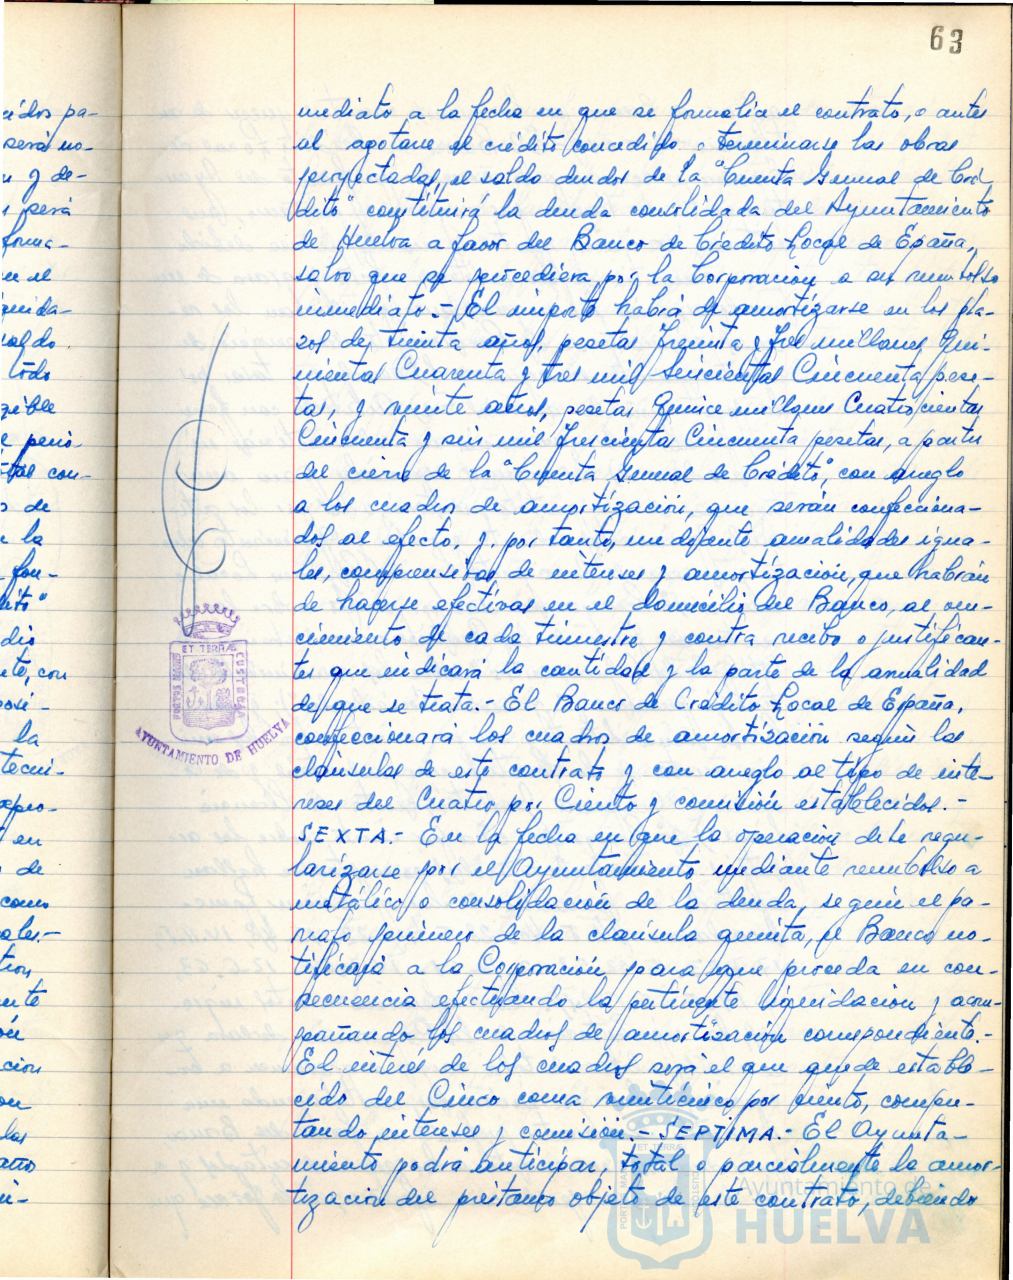 63
mediato a la fecha en que se formalice el contrato, o antes
al agotarse el crédito concedido o terminarse las obras
proyectadas, el saldo deudor de la "Cuenta General de Cré-
dito" constituirá la deuda consolidada del Ayuntamiento
de Huelva a favor del Banco de Crédito Local de España,
salvo que se procediera por la Corporación a su reembolso
inmediato.- El importe habrá de amortizarse en los pla-
zos de, treinta años, pesetas Treinta y Tres millones Qui-
nientas Cuarenta y tres mil Seiscientas Cincuenta pese-
tas, y veinte años, pesetas Quince millones Cuatrocientas
Cincuenta y seis mil Trescientas Cincuenta pesetas, a partir
del cierre de la "Cuenta General de Crédito", con arreglo
a los cuadros de amortización, que serán confecciona-
dos al efecto, y, por tanto, mediante anualidades igua-
les, comprensivas de intereses y amortización, que habrán
de hacerse efectivas en el domicilio del Banco, al ven-
cimiento de cada trimestre y contra recibo o justifican-
tes que indicará la cantidad y la parte de la anualidad
de que se trata.- El Banco de Crédito Local de España,
confeccionará los cuadros de amortización según las
cláusulas de este contrato y con arreglo al tipo de inte-
reses del Cuatro por Ciento y comisión establecidos.-
SEXTA.- En la fecha en que la operación debe regu-
larizarse por el Ayuntamiento mediante reembolso a
metálico o consolidación de la deuda, según el pá-
rrafo primero de la cláusula quinta, el Banco no-
tificará a la Corporación para que proceda en con-
secuencia efectuando la pertinente liquidación y acom-
pañando los cuadros de amortización correspondiente.-
El interés de los cuadros será el que quede estable-
cido del Cinco coma veinticinco por ciento, compu-
tando intereses y comisión.- SEPTIMA.- El Ayunta-
miento podrá anticipar, total o parcialmente la amor-
tización del préstamo objeto de este contrato, debiendo
cidos pa-
será no-
n y de-
será
forma-
en el
saldo
todo
de
la
la
en
de
como
ET TERRÆ
PORTUS MARIS
CUSTODIA
AYUNTAMIENTO DE HUELVA
Ayuntamiento de
HUELVA